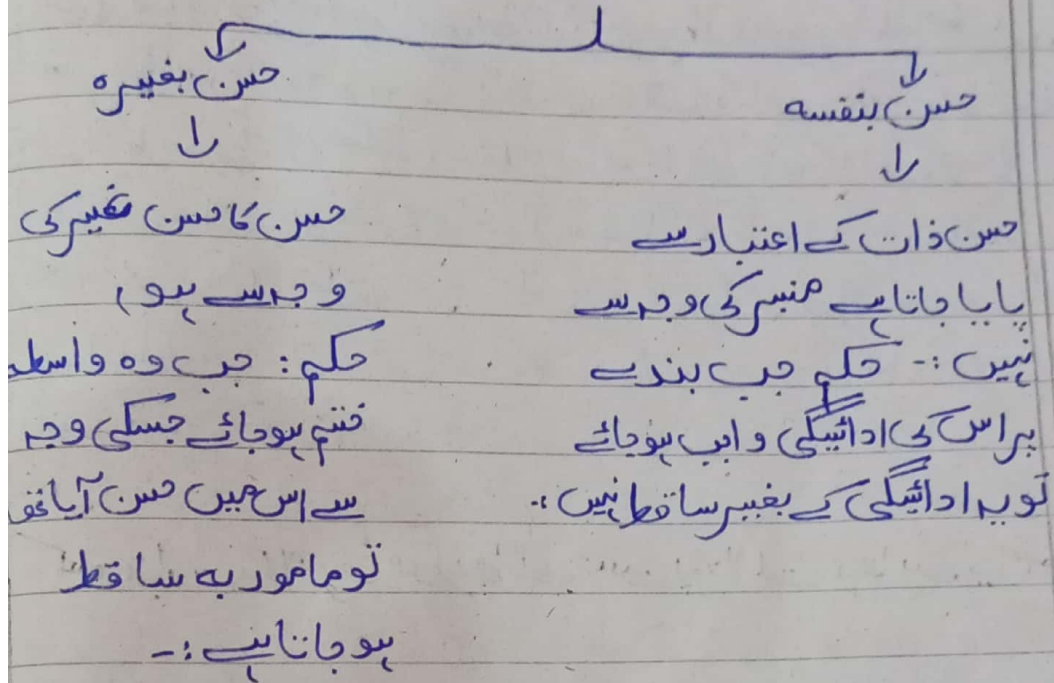 حسن بنفسه
حسن ذات کے اعتبار سے
پایا جاتا ہے منسر کی وجہ سے
نہیں :- حکم جب بندے
پر اس کی ادائیگی واجب ہوجائے
تو یہ ادائیگی کے بغیر ساقط نہیں :-
حسن بغیرہ
حسن کا حسن غیر کی
وجہ سے ہو ،
حکم : جب وہ واسطہ
ختم ہوجائے جسکی وجہ
سے اس میں حسن آیا تھا
تو مامور بہ ساقط
ہو جاتا ہے :-